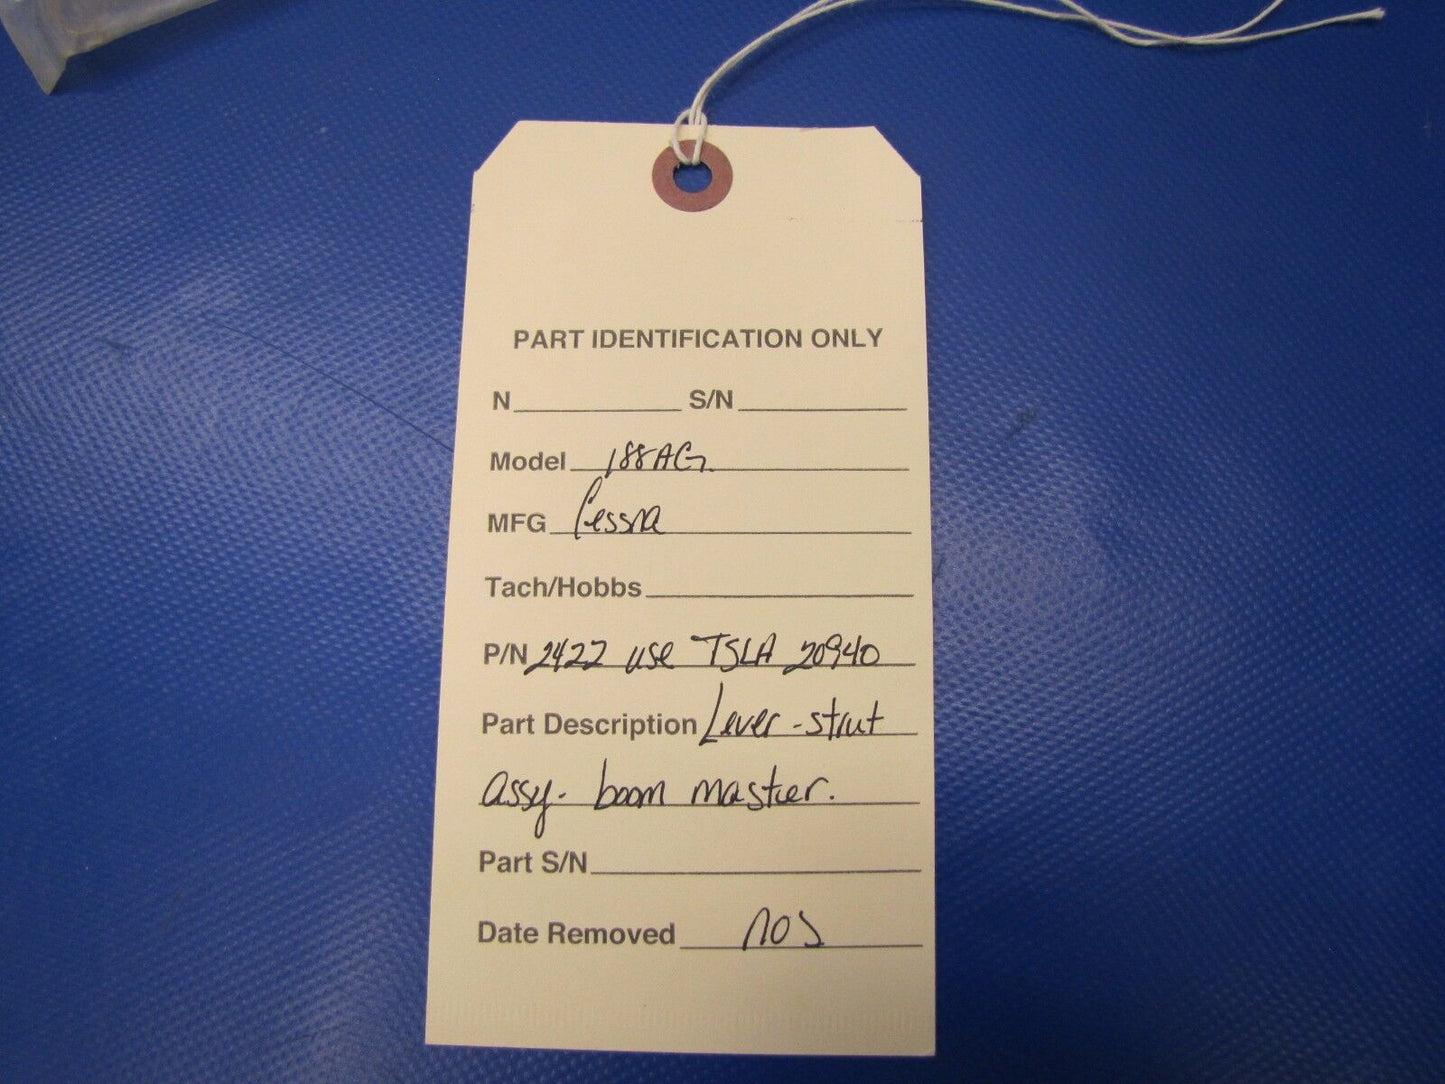 PART IDENTIFICATION ONLY
N____________ S/N____________
Model 188AG
MFG Cessna
Tach/Hobbs____________
P/N 2422 use TSLA 20940
Part Description Lever-strut
assy- boom master.
Part S/N____________
Date Removed NOS